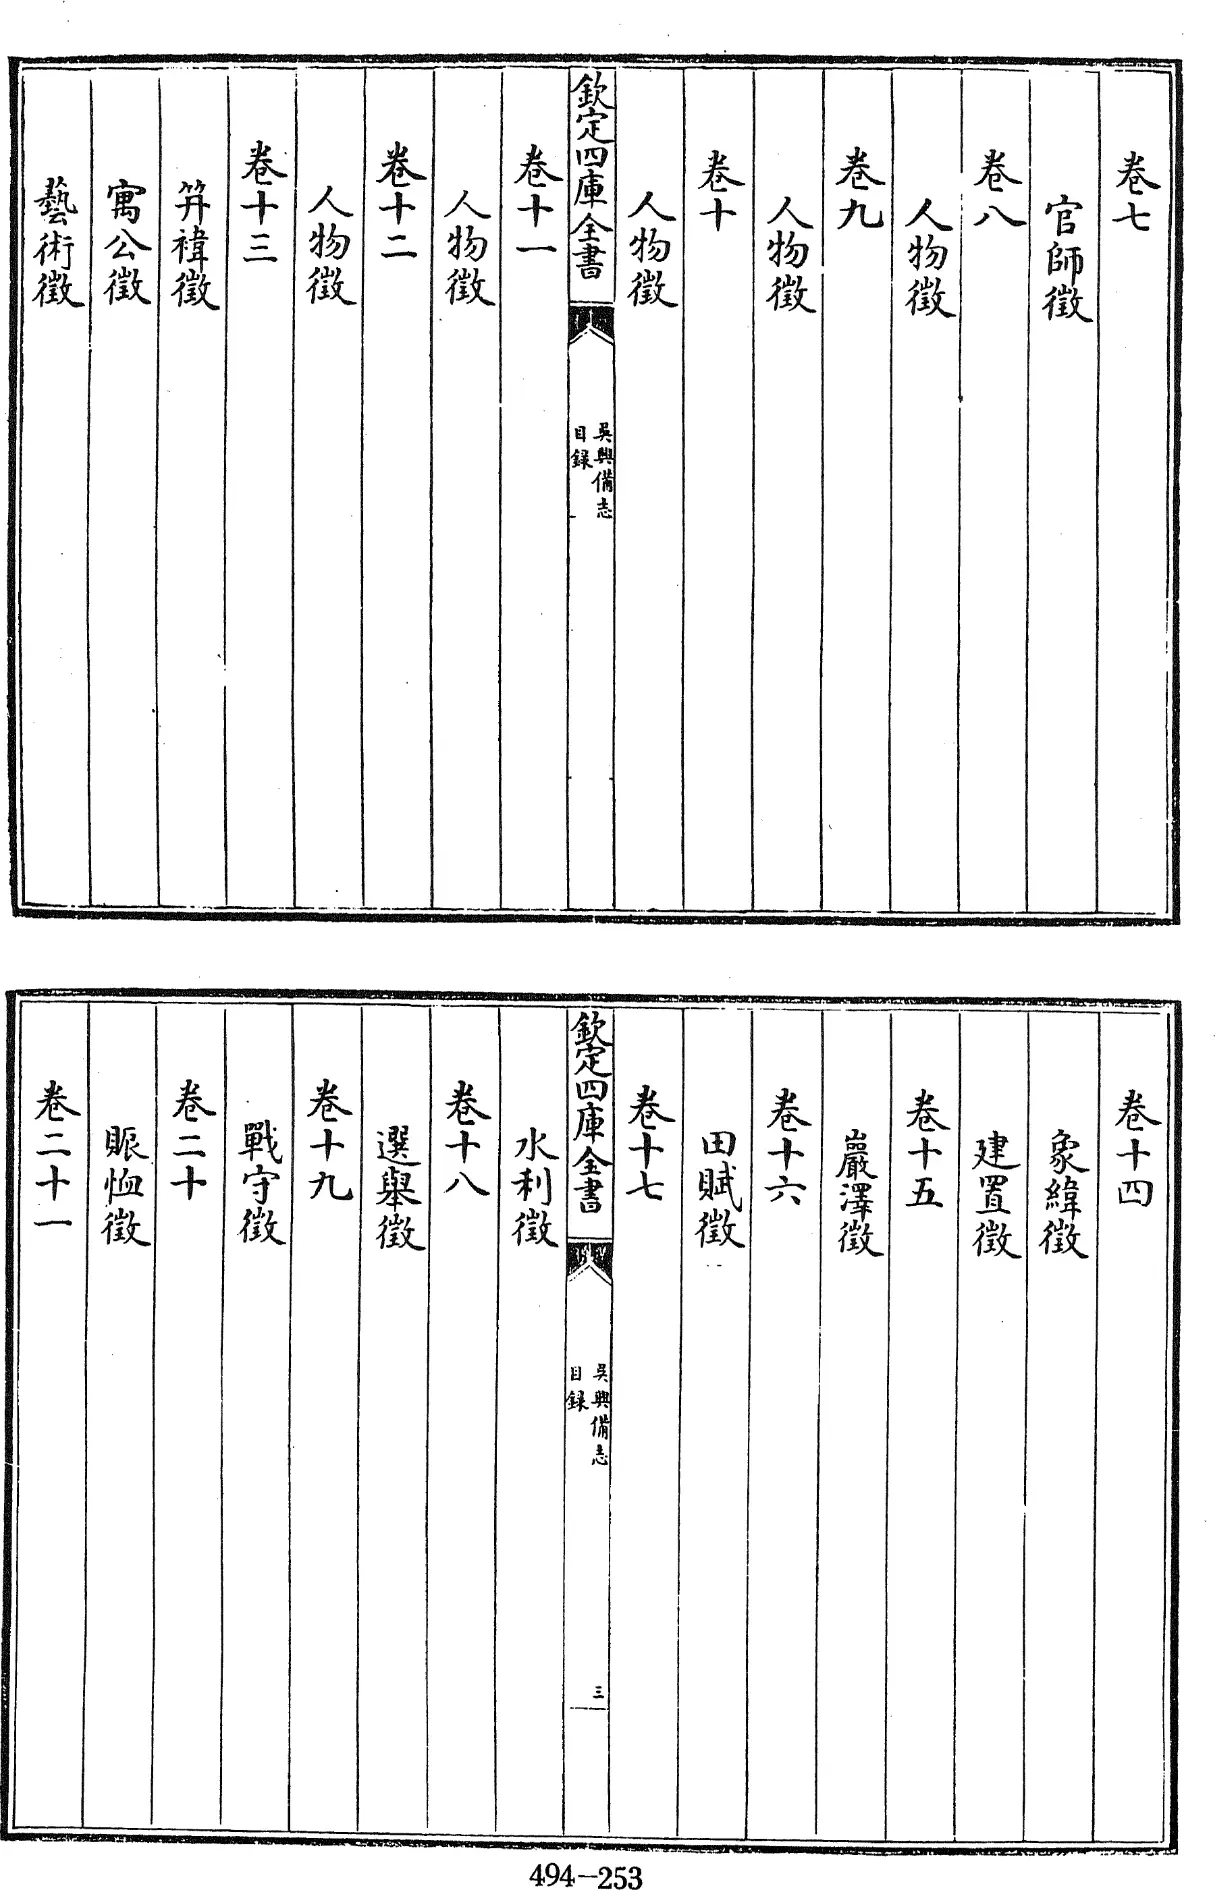 卷七
官師徵
卷八
人物徵
卷九
人物徵
卷十
人物徵
欽定四庫全書
吳興備志
目錄
卷十一
人物徵
卷十二
人物徵
卷十三
笄褘徵
寓公徵
藝術徵
卷十四
象緯徵
建置徵
卷十五
巖澤徵
卷十六
田賦徵
卷十七
欽定四庫全書
吳興備志
目錄
三
水利徵
卷十八
選舉徵
卷十九
戰守徵
卷二十
賑恤徵
卷二十一
494-253